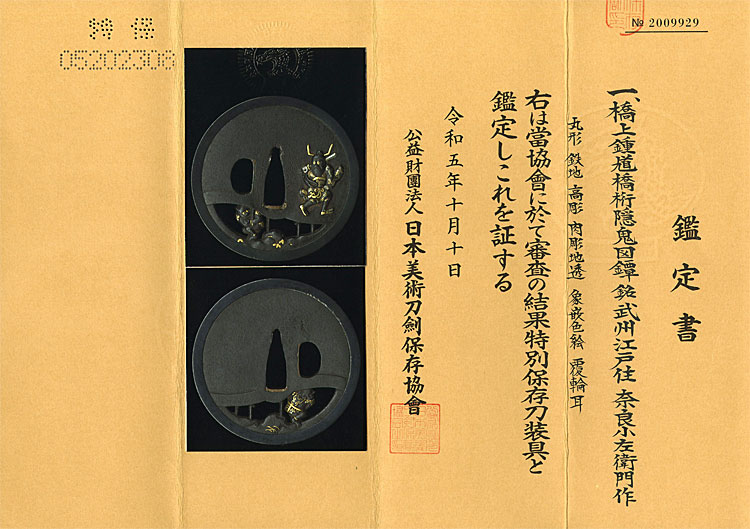 鑑定書
一、橋上鍾道橋桁隠鬼図鐔 銘 武州江戸住 奈良小左衛門作
丸形 鉄地 高彫 肉彫地透 象嵌色絵 覆輪耳
右は當協會に於て審査の結果特別保存刀装具と
鑑定しこれを証する
令和五年十月十日
公益財團法人 日本美術刀劍保存協會
№ 2009929
特 保
05202308